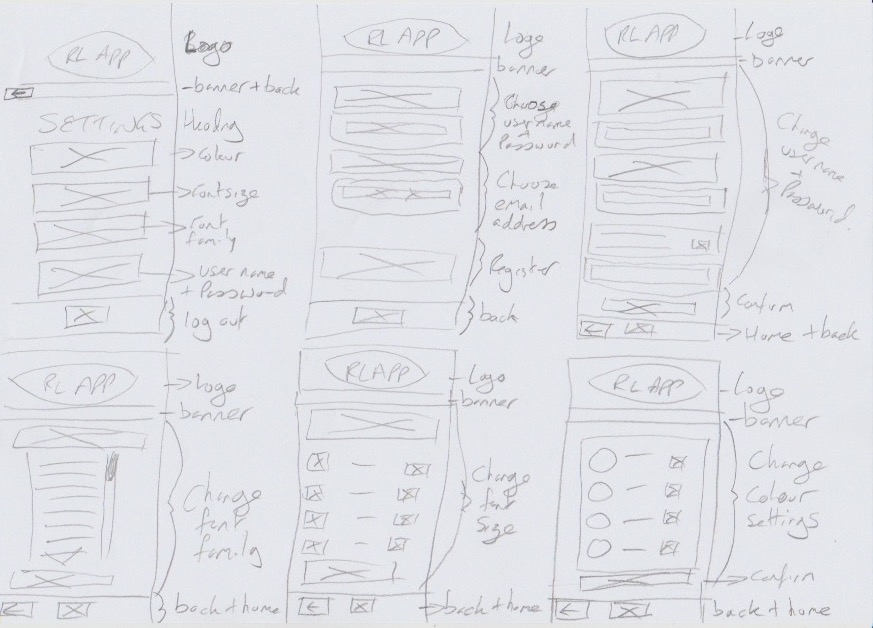 RL APP
Logo
banner + back
SETTINGS
Heading
Colour
Font size
Font
family
user name
+ Password
log out
RL APP
Logo
banner
Choose
username
+
Password
Choose
email
address
Register
back
RL APP
Logo
banner
Change
username
+
Password
Confirm
Home + back
RL APP
Logo
banner
Change
font
family
back + home
RL APP
Logo
banner
Change
font
size
back + home
RL APP
Logo
banner
Change
Colour
settings
Confirm
back + home